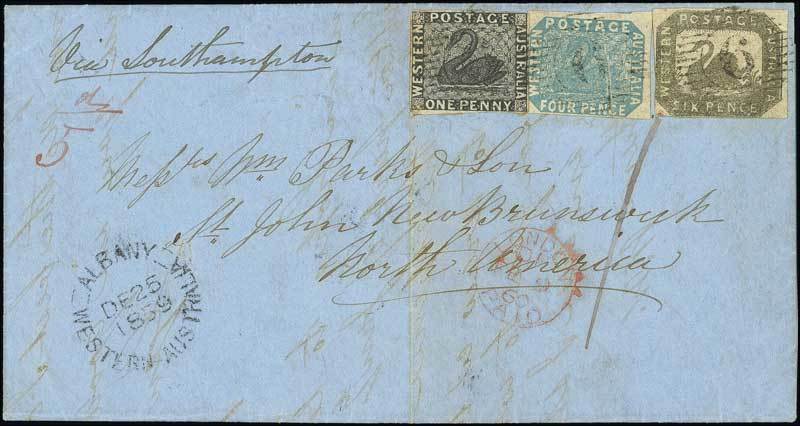 Via Southampton
POSTAGE
WESTERN
AUSTRALIA
ONE PENNY
POSTAGE
WESTERN
AUSTRALIA
FOUR PENCE
POSTAGE
WESTERN
AUSTRALIA
SIX PENCE
Messrs Wm Parks & Son
St. John New Brunswick
North America
ALBANY
DE 26
1859
WESTERN AUSTRALIA
LONDON
60
PAID